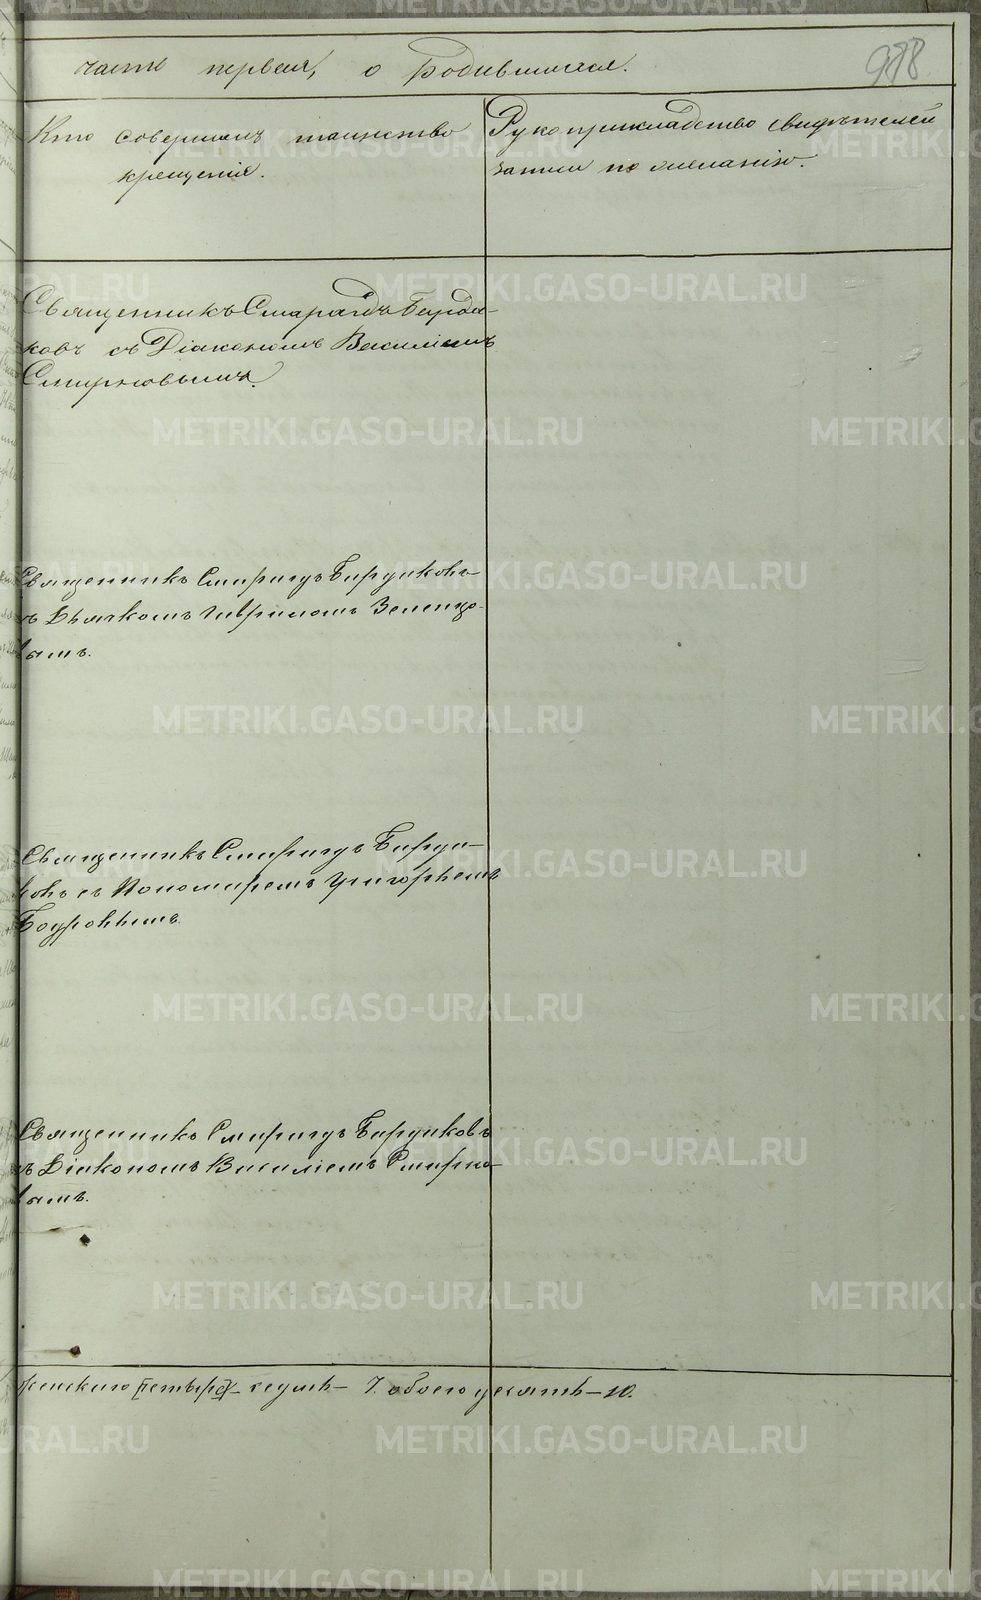 часть первая, о Родившихся.
988
Кто совершалъ таинство
крещенія.
Рукоприкладство свидѣтелей
записи по желанію.
Священникъ Смарагдъ Бирдю-
ковъ съ Діакономъ Василіемъ
Смирновымъ.
Священникъ Смарагдъ Бирдюковъ
съ Дьячкомъ Гавріиломъ Зеленцо-
вымъ.
Священникъ Смарагдъ Бирдю-
ковъ съ Пономаремъ Григорьемъ
Бодровымъ.
Священникъ Смарагдъ Бирдюковъ
съ Діакономъ Василіемъ Смирно-
вымъ.
женскаго [четыре] седмь — 7. обоего десять — 10.
METRIKI.GASO-URAL.RU